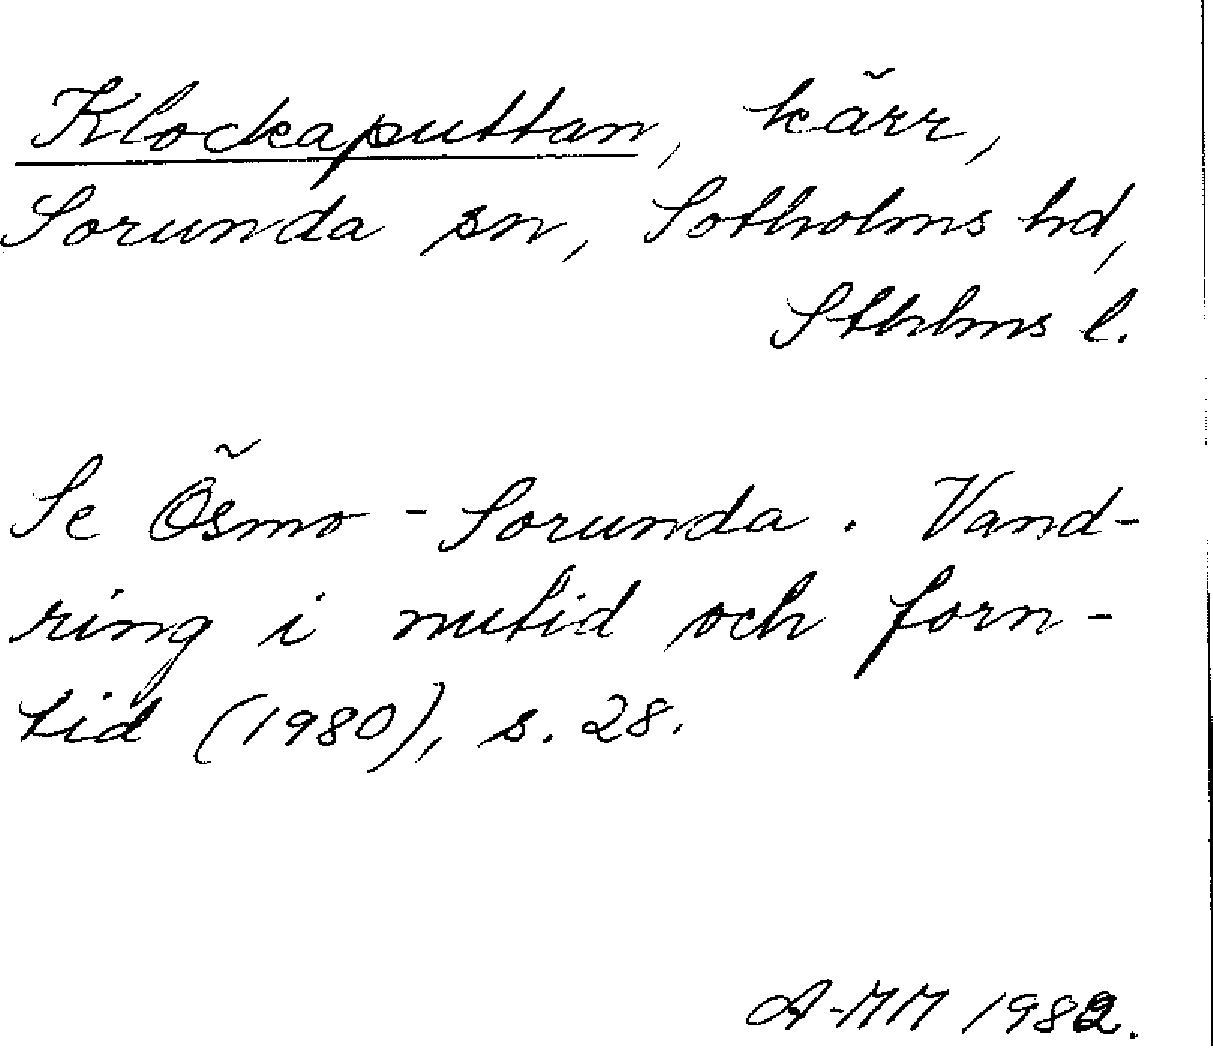 Klockaputtan, kärr,
Sorunda sn, Sotholms hd,
Sthlms l.
Se Ösmo - Sorunda. Vand-
ring i nutid och forn-
tid (1980), s. 28.
A-MM 1982.